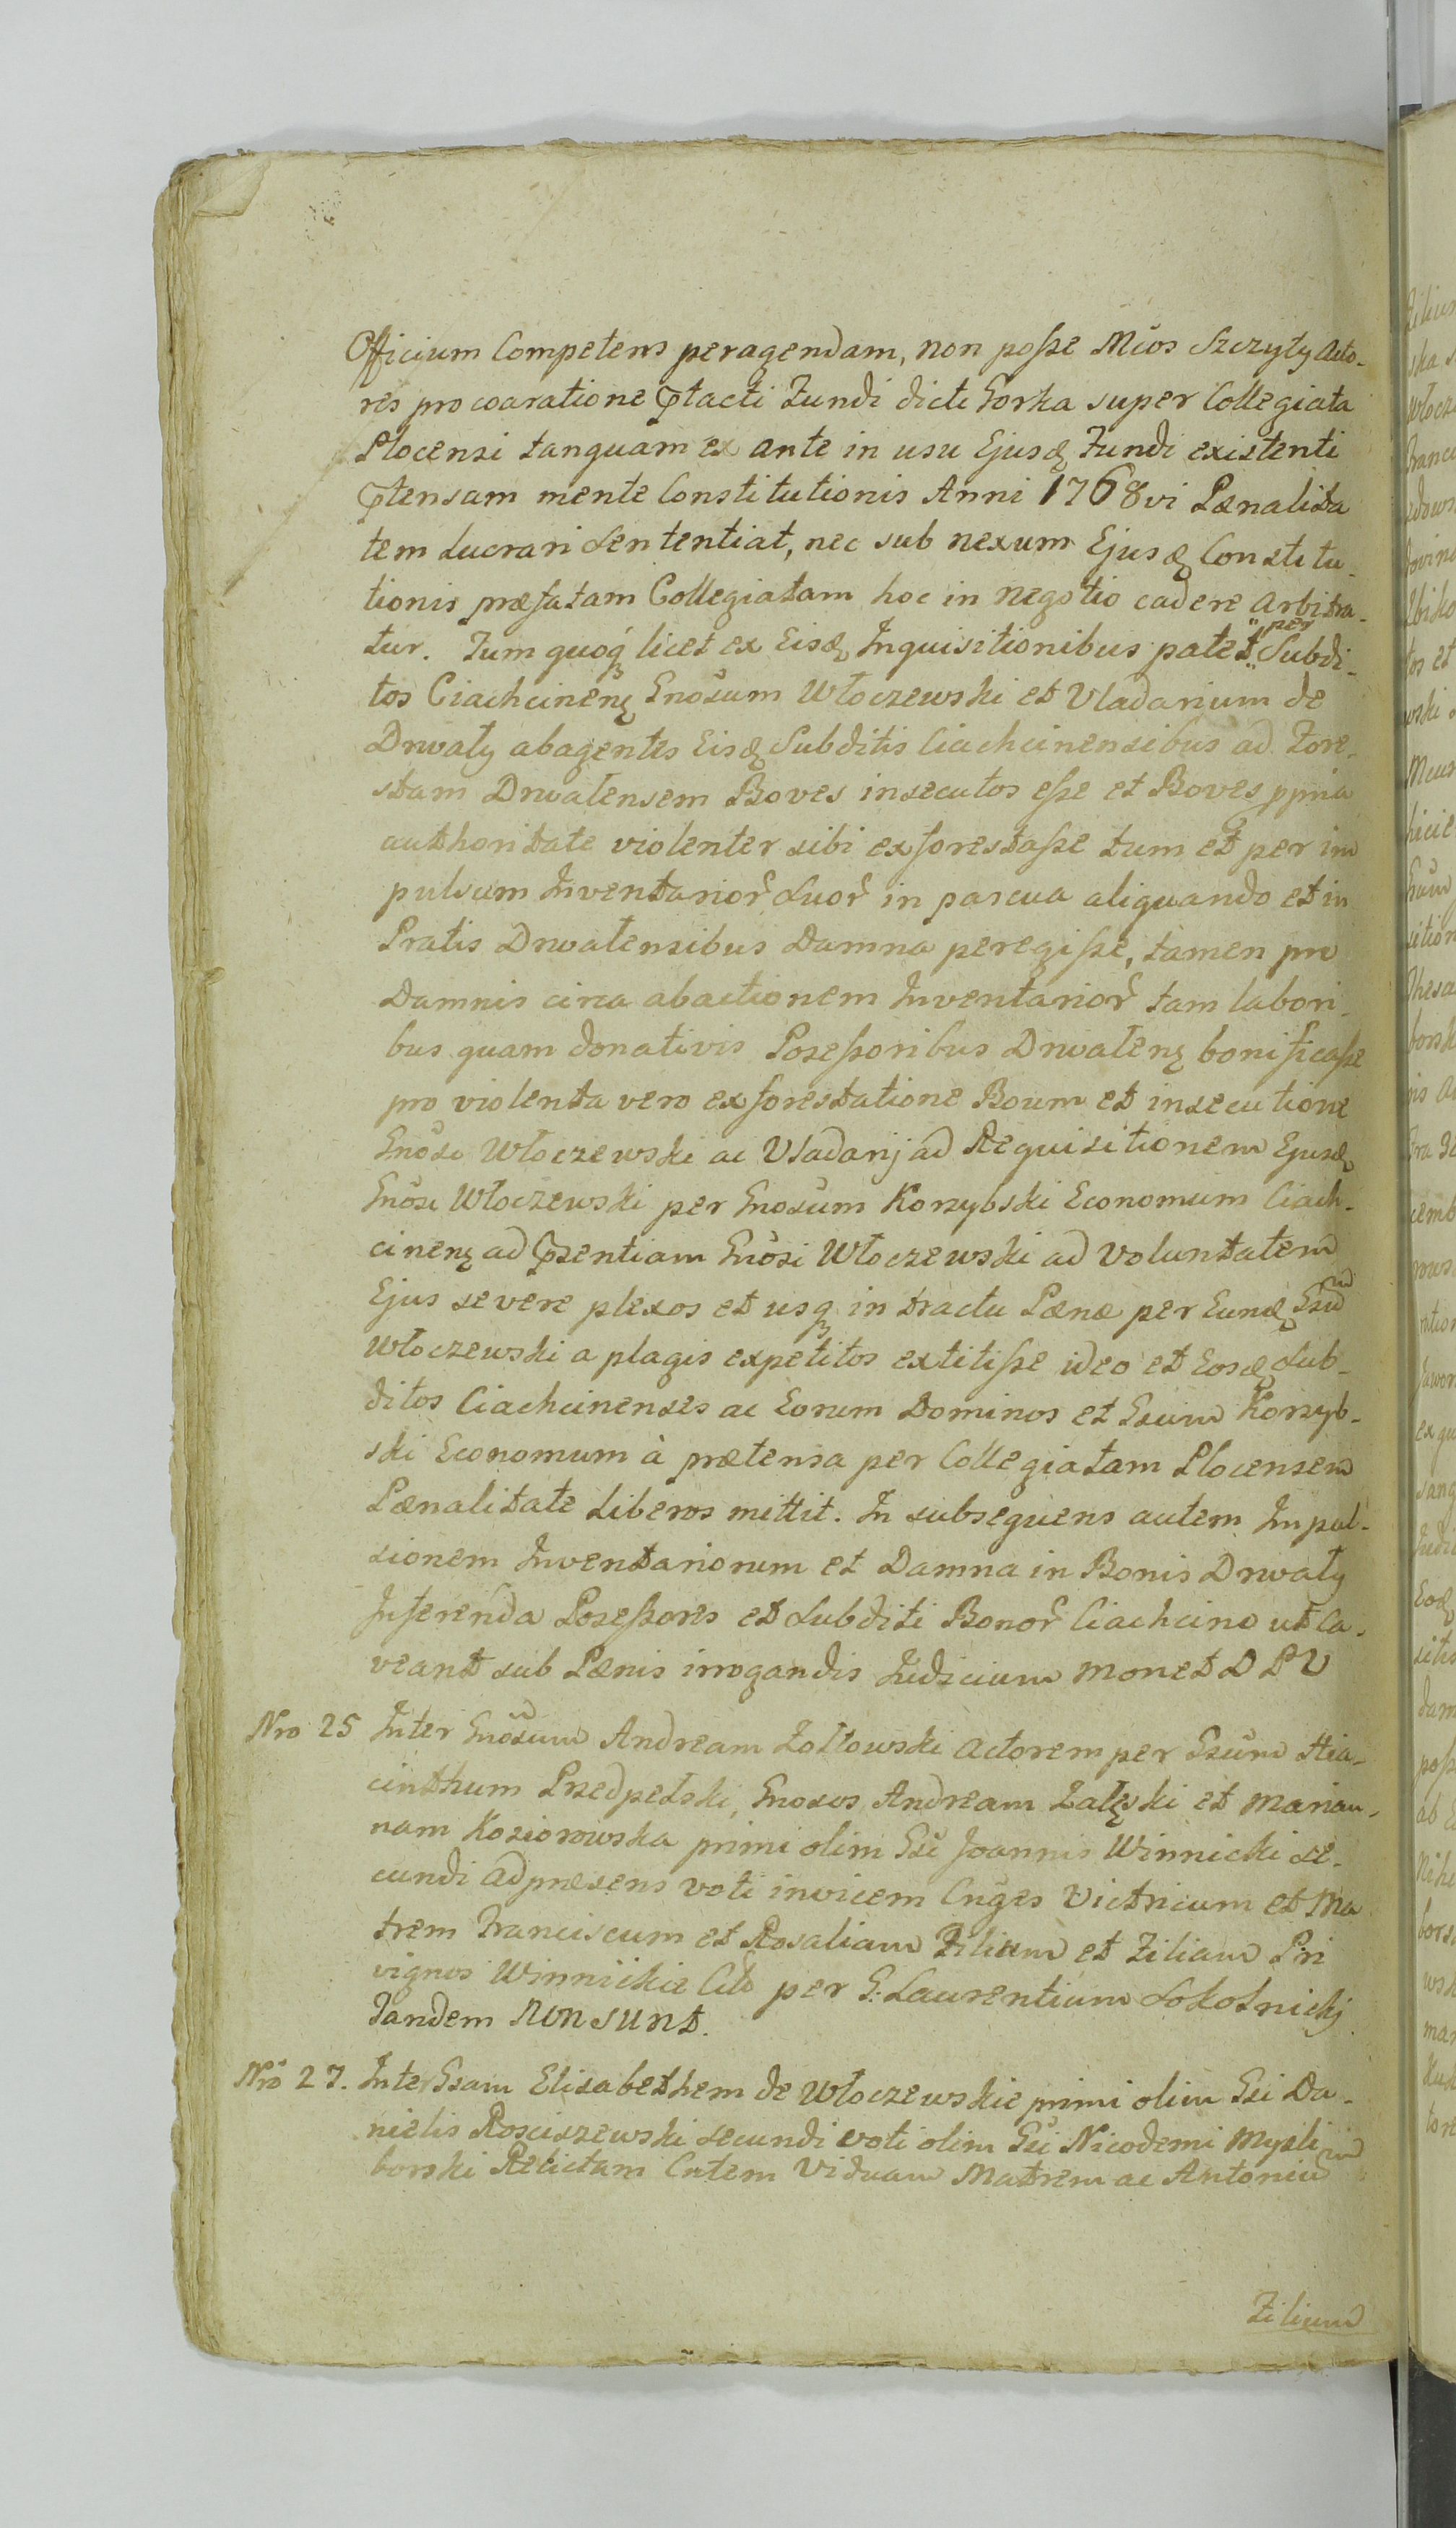 Officium Competens peragendam, non posse Mcos Szczyty Acto-
res pro coaratione Ptacti Fundi dicti Gorka super Collegiata
Plocensi tanquam ex ante in usu Ejusd Fundi existenti
Ptensam mente Constitutionis Anni 1768vi Pænalita
tem Lucrari Sententiat, nec sub nexum Ejusd Constitu-
tionis præfatam Collegiatam hoc in negotio cadere Arbitra-
tur. Tum quoq licet ex Eisd Inquisitionibus patet " per " Subdi-
tos Ciachcinen Gnosum Włoczewski et Vladarium de
Drwały abagentes Eisd Subditis Ciachcinensibus ad Fore-
stam Drwalensem Boves insecutos esse et Boves ppria
authoritate violenter sibi exforestasse tum et per im
pulsum Inventarior Suor in pascua aliquando et in
Pratis Drwalensibus Damna peregisse, tamen pro
Damnis circa abactionem Inventarior tam labori-
bus quam donativis Posessoribus Drwalen bonificasse
pro violenta vero exforestatione Boum et insecutione
Gnosi Włoczewski ac Vladarij ad Requisitionem Ejusd
Gnosi Włoczewski per Gnosum Korzybski Economum Ciach-
cinen ad Psentiam Gnosi Włoczewski ad voluntatem
Ejus severe plexos et usq in tractu Pænæ per Eund Gsum
Włoczewski a plagis expetitos extitisse ideo et Eosd Sub-
ditos Ciachcinenses ac Eorum Dominos et Gsum Korzyb-
ski Economum à prætensa per Collegiatam Plocensem
Pænalitate Liberos mittit. In subsequens autem Impul-
sionem Inventariorum et Damna in Bonis Drwały
Inferenda Posessores et Subditi Bonor Ciachcino ut Ca-
veant sub Pænis irrogandis Judicium monet D P V
Nro 25 Inter Gnosum Andream Zołtowski Actorem per Gsum Hia-
cinthum Przedpełski, Gnosos Andream Zalęski et Marian-
nam Koziorowska primi olim Gsi Joannis Winnicki se-
cundi ad præsens voti invicem Cnges Victricum et Ma
trem Franciscum et Rosaliam Filium et Filiam Pri
vignos Winnickie Citt per G. Laurentium Sokolnickj
Tandem non sunt.
Nro 27. Inter Gsam Elisabethem de Włoczewskie primi olim Gsi Da-
nielis Rosciszewski secundi voti olim Gsi Nicodemi Mysli
borski Relictam Cntem Viduam Matrem ac Antonium
Filium